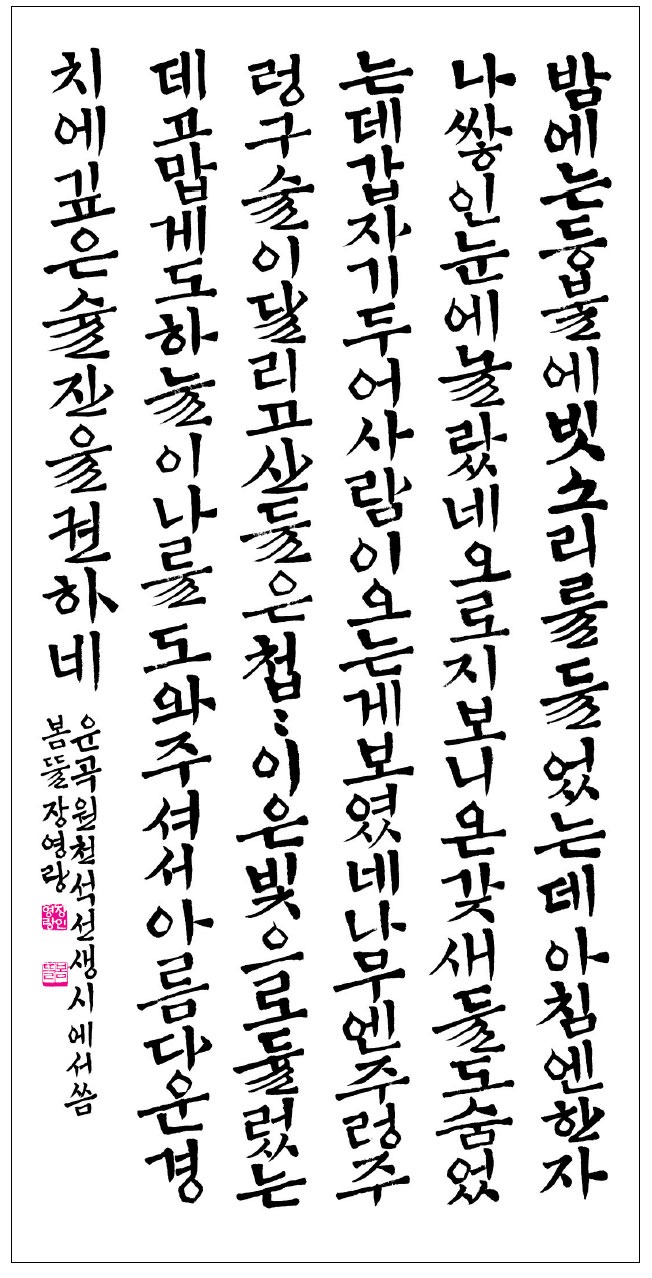 밤에는등불에빗소리를들었는데아침엔한자
나쌓인눈에놀랐네오로지보니온갖새들도숨었
는데갑자기두어사람이오는게보였네나무엔주렁주
렁구슬이달리고산들은첩:이은빛으로둘렀는
데고맙게도하늘이나를도와주셔서아름다운경
치에깊은술잔을권하네
운곡원천석선생시에서씀
봄뜰장영랑
장인영랑
봄뜰